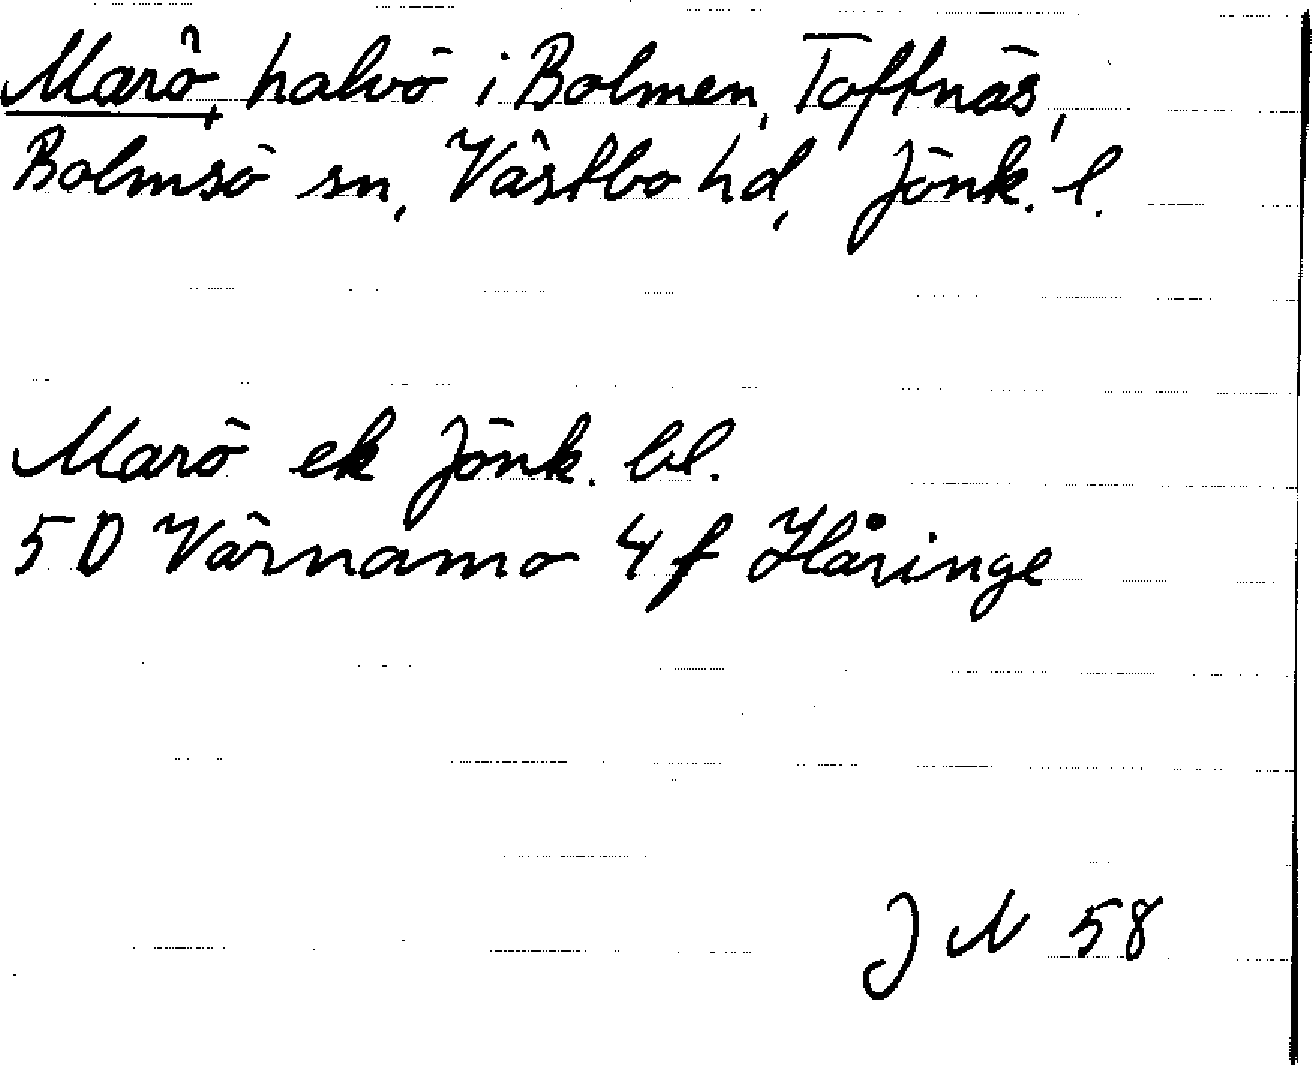 Marö, halvö i Bolmen, Toftnäs,
Bolmsö sn, Västbo hd, Jönk. l.
Marö ek Jönk. bl.
5D Värnamo 4f Håringe
J N 58